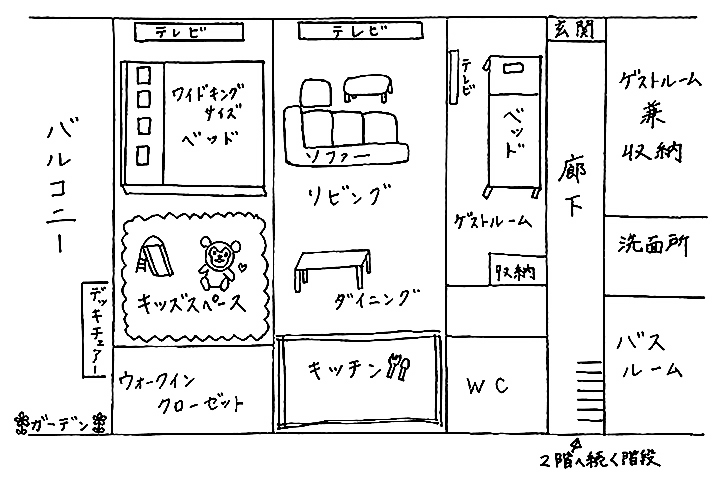 テレビ
テレビ
玄関
ワイドキング
サイズ
ベッド
テレビ
ベッド
ゲストルーム
兼
収納
バルコニー
ソファー
リビング
廊下
ゲストルーム
洗面所
収納
キッズスペース
ダイニング
デッキチェアー
バス
ルーム
ウォークイン
クローゼット
キッチン
WC
ガーデン
2階へ続く階段